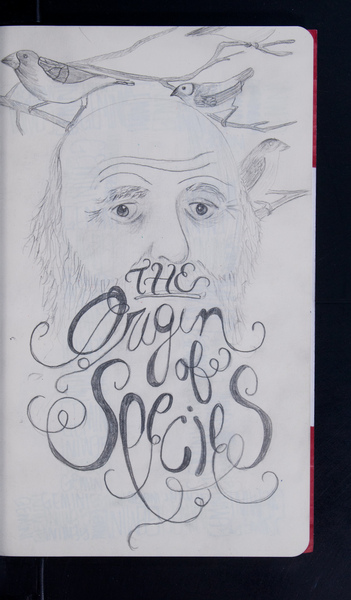 THE
Origin
of
SpecieS